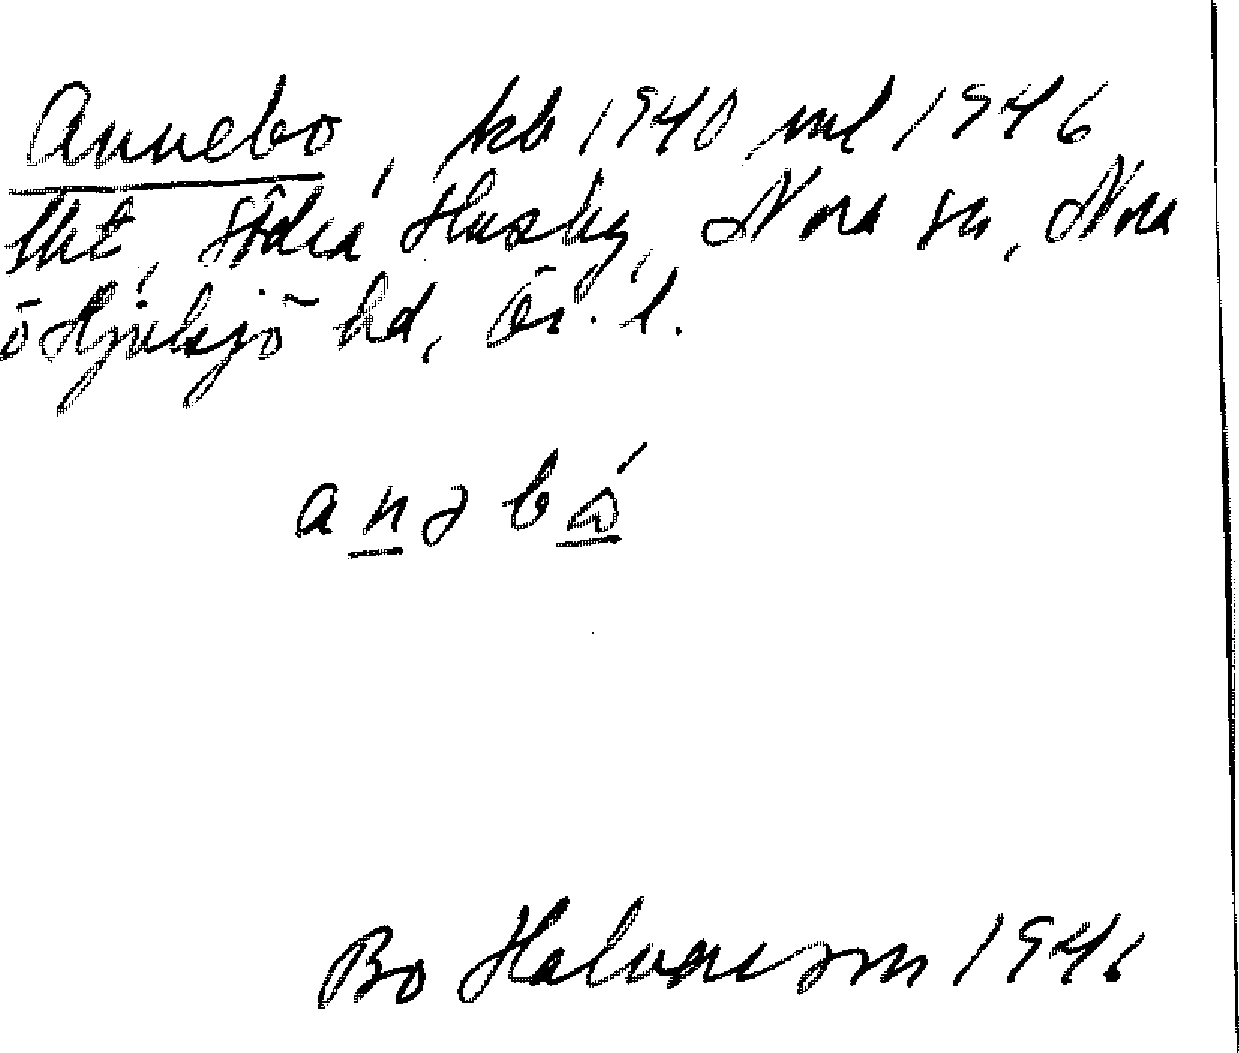 Annebo, kb 1940 ml 1946
lht, Södra Husby, Nora sn, Nora
o Hjulsjö hd, Ör. l.
anəbó
Bo Halvarson 1946